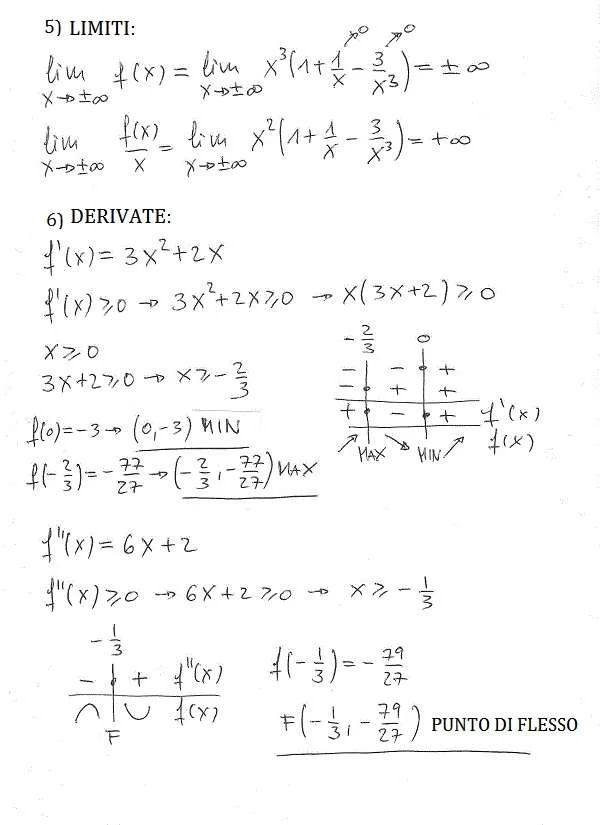 5) LIMITI:
lim x→±∞ f(x) = lim x→±∞ x³(1 + 1/x →0 − 3/x³ →0) = ±∞
lim x→±∞ f(x)/x = lim x→±∞ x²(1 + 1/x − 3/x³) = +∞
6) DERIVATE:
f'(x) = 3x² + 2x
f'(x) ⩾ 0 → 3x² + 2x ⩾ 0 → x(3x + 2) ⩾ 0
x ⩾ 0
3x + 2 ⩾ 0 → x ⩾ − 2/3
− 2/3 0
− − +
− + +
+ − + f'(x)
↗ ↘ ↗ f(x)
MAX MIN
f(0) = −3 → (0, −3) MIN
f(− 2/3) = − 77/27 → (− 2/3, − 77/27) MAX
f''(x) = 6x + 2
f''(x) ⩾ 0 → 6x + 2 ⩾ 0 → x ⩾ − 1/3
− 1/3
− + f''(x)
∩ ∪ f(x)
F
f(− 1/3) = − 79/27
F(− 1/3, − 79/27) PUNTO DI FLESSO